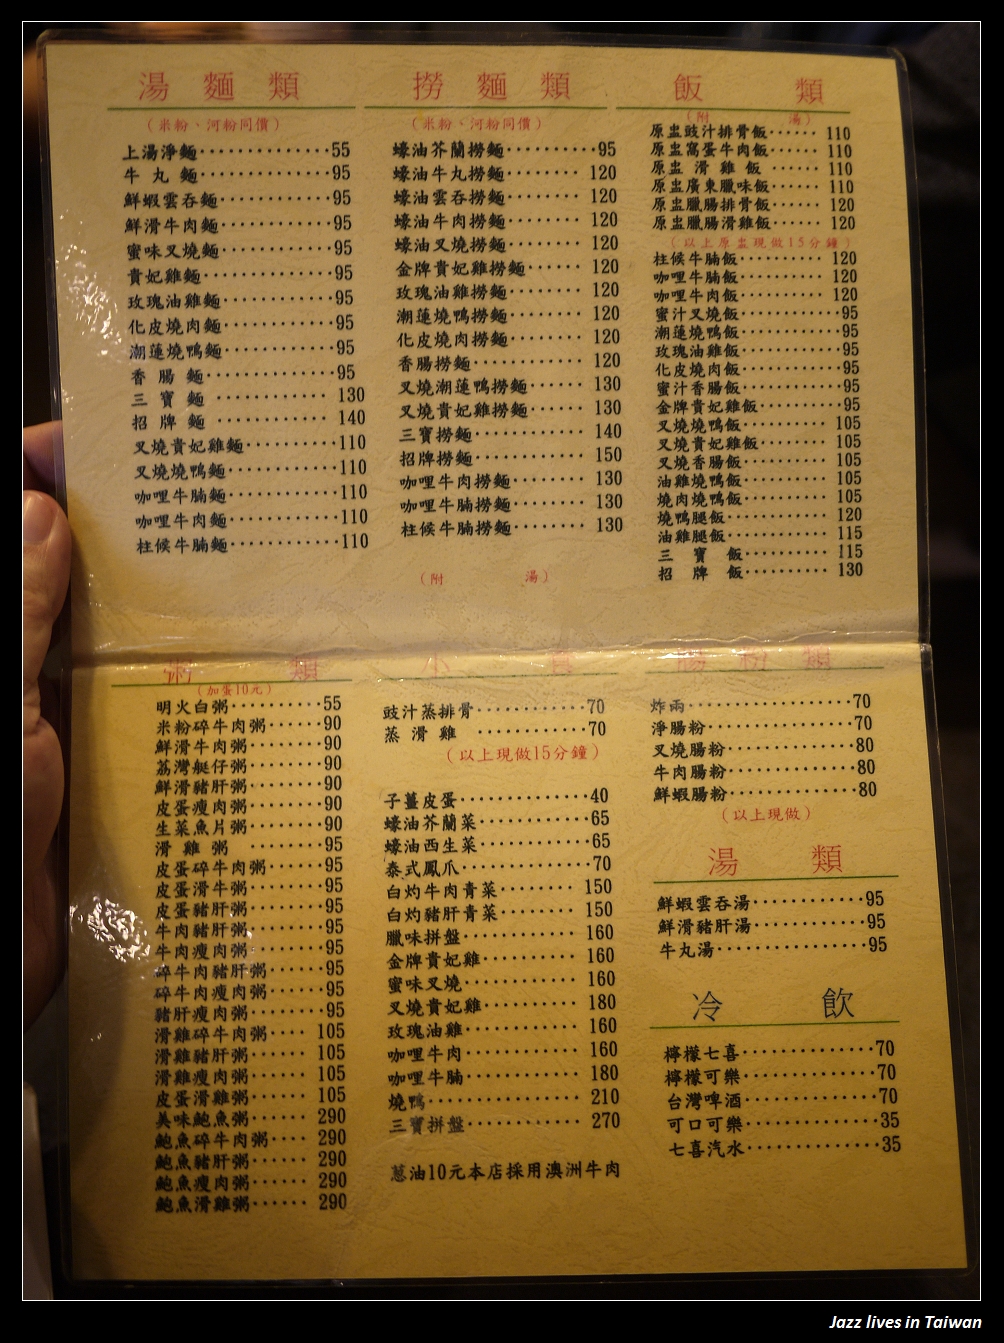 湯麵類
（米粉、河粉同價）
上湯淨麵··············55
牛丸麵··············95
鮮蝦雲吞麵············95
鮮滑牛肉麵············95
蜜味叉燒麵············95
貴妃雞麵··············95
玫瑰油雞麵············95
化皮燒肉麵············95
潮蓮燒鴨麵············95
香腸麵··············95
三寶麵············130
招牌麵············140
叉燒貴妃雞麵··········110
叉燒燒鴨麵············110
咖哩牛腩麵············110
咖哩牛肉麵············110
柱候牛腩麵············110
撈麵類
（米粉、河粉同價）
蠔油芥蘭撈麵··········95
蠔油牛丸撈麵········120
蠔油雲吞撈麵········120
蠔油牛肉撈麵········120
蠔油叉燒撈麵········120
金牌貴妃雞撈麵······120
玫瑰油雞撈麵········120
潮蓮燒鴨撈麵········120
化皮燒肉撈麵········120
香腸撈麵············120
叉燒潮蓮鴨撈麵······130
叉燒貴妃雞撈麵······130
三寶撈麵············140
招牌撈麵············150
咖哩牛肉撈麵········130
咖哩牛腩撈麵········130
柱候牛腩撈麵········130
（附湯）
飯類
（附湯）
原盅豉汁排骨飯······110
原盅窩蛋牛肉飯······110
原盅滑雞飯······110
原盅廣東臘味飯······110
原盅臘腸排骨飯······120
原盅臘腸滑雞飯······120
（以上原盅現做15分鐘）
柱候牛腩飯··········120
咖哩牛腩飯··········120
咖哩牛肉飯··········120
蜜汁叉燒飯···········95
潮蓮燒鴨飯···········95
玫瑰油雞飯···········95
化皮燒肉飯···········95
蜜汁香腸飯···········95
金牌貴妃雞飯·········95
叉燒燒鴨飯··········105
叉燒貴妃雞飯········105
叉燒香腸飯··········105
油雞燒鴨飯··········105
燒肉燒鴨飯··········105
燒鴨腿飯············120
油雞腿飯············115
三寶飯··········115
招牌飯··········130
粥類
（加蛋10元）
明火白粥··········55
米粉碎牛肉粥······90
鮮滑牛肉粥········90
荔灣艇仔粥········90
鮮滑豬肝粥········90
皮蛋瘦肉粥········90
生菜魚片粥········90
滑雞粥········95
皮蛋碎牛肉粥······95
皮蛋滑牛粥········95
皮蛋豬肝粥········95
牛肉豬肝粥········95
牛肉瘦肉粥········95
碎牛肉豬肝粥······95
碎牛肉瘦肉粥······95
豬肝瘦肉粥········95
滑雞碎牛肉粥····105
滑雞豬肝粥······105
滑雞瘦肉粥······105
皮蛋滑雞粥······105
美味鮑魚粥······290
鮑魚碎牛肉粥····290
鮑魚豬肝粥······290
鮑魚瘦肉粥······290
鮑魚滑雞粥······290
小食
豉汁蒸排骨············70
蒸滑雞············70
（以上現做15分鐘）
子薑皮蛋··············40
蠔油芥蘭菜············65
蠔油西生菜············65
泰式鳳爪··············70
白灼牛肉青菜········150
白灼豬肝青菜········150
臘味拼盤············160
金牌貴妃雞··········160
蜜味叉燒············160
叉燒貴妃雞··········180
玫瑰油雞············160
咖哩牛肉············160
咖哩牛腩············180
燒鴨················210
三寶拼盤············270
蔥油10元本店採用澳洲牛肉
腸粉類
炸兩················70
淨腸粉··············70
叉燒腸粉············80
牛肉腸粉············80
鮮蝦腸粉············80
（以上現做）
湯類
鮮蝦雲吞湯··········95
鮮滑豬肝湯··········95
牛丸湯··············95
冷飲
檸檬七喜············70
檸檬可樂············70
台灣啤酒············70
可口可樂············35
七喜汽水············35
Jazz lives in Taiwan